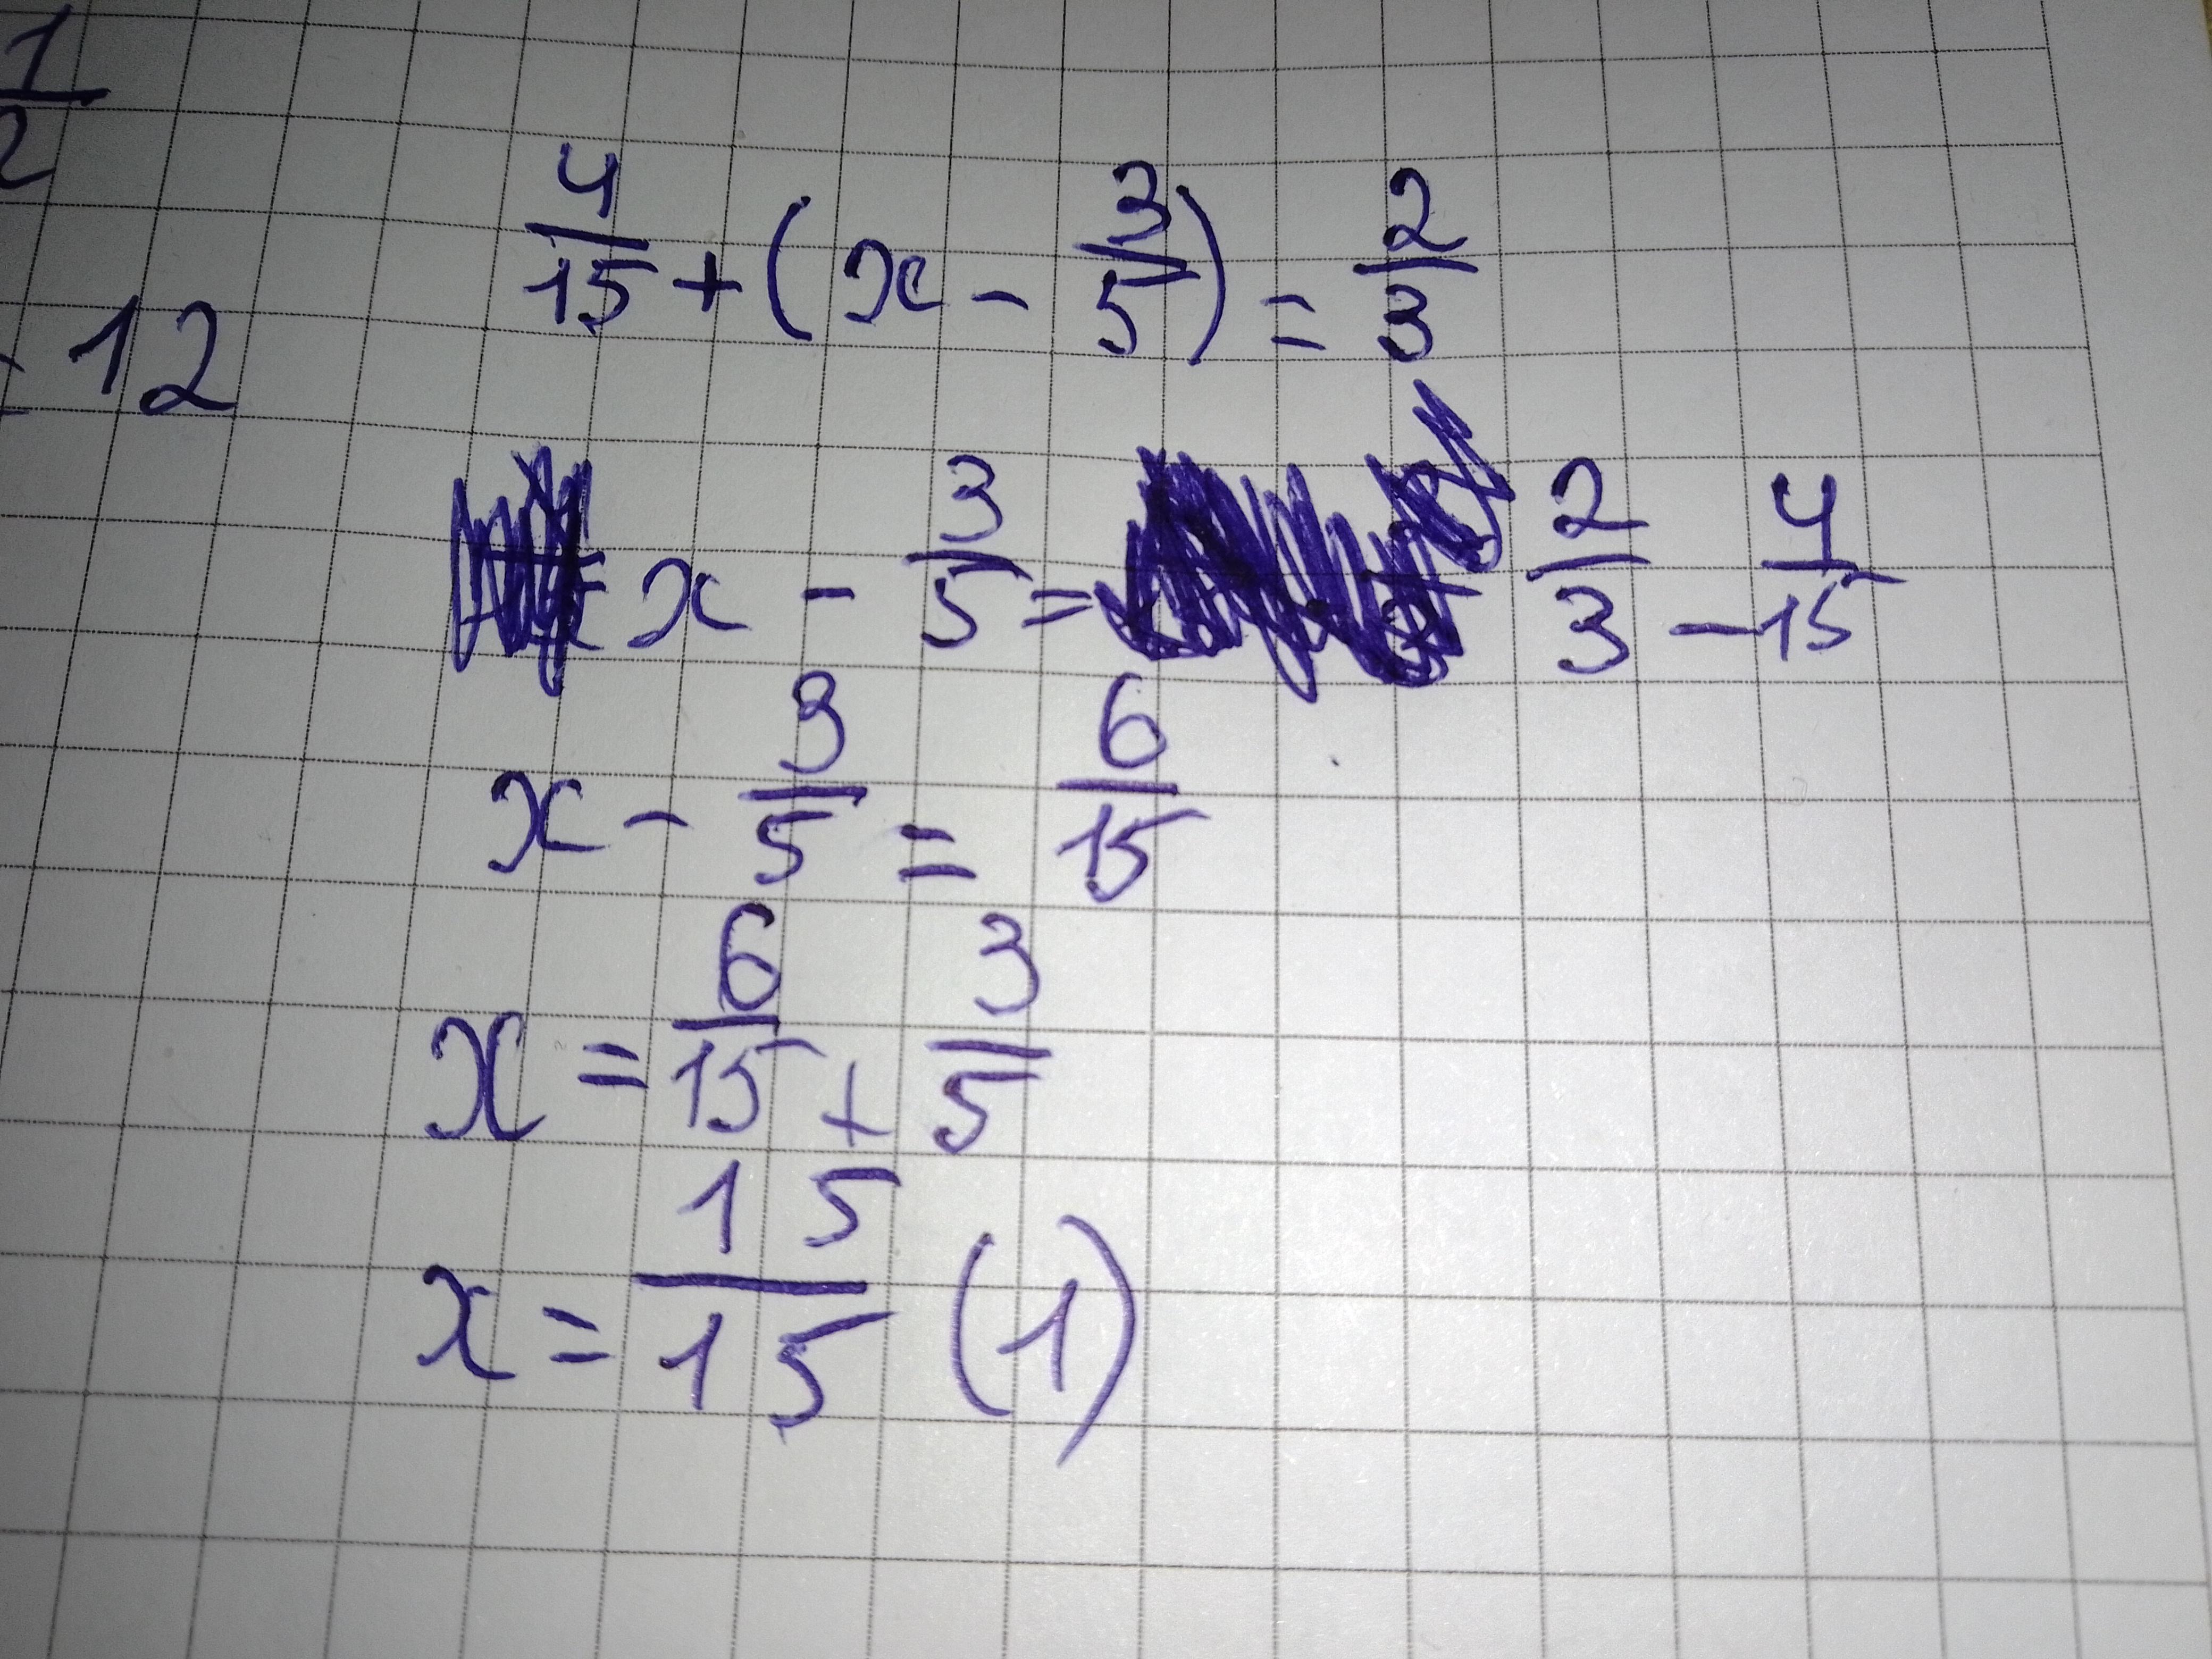 1/2
= 12
4/15 + (x - 3/5) = 2/3
x - 3/5 = 2/3 - 4/15
x - 3/5 = 6/15
x = 6/15 + 3/5
x = 15/15 (1)